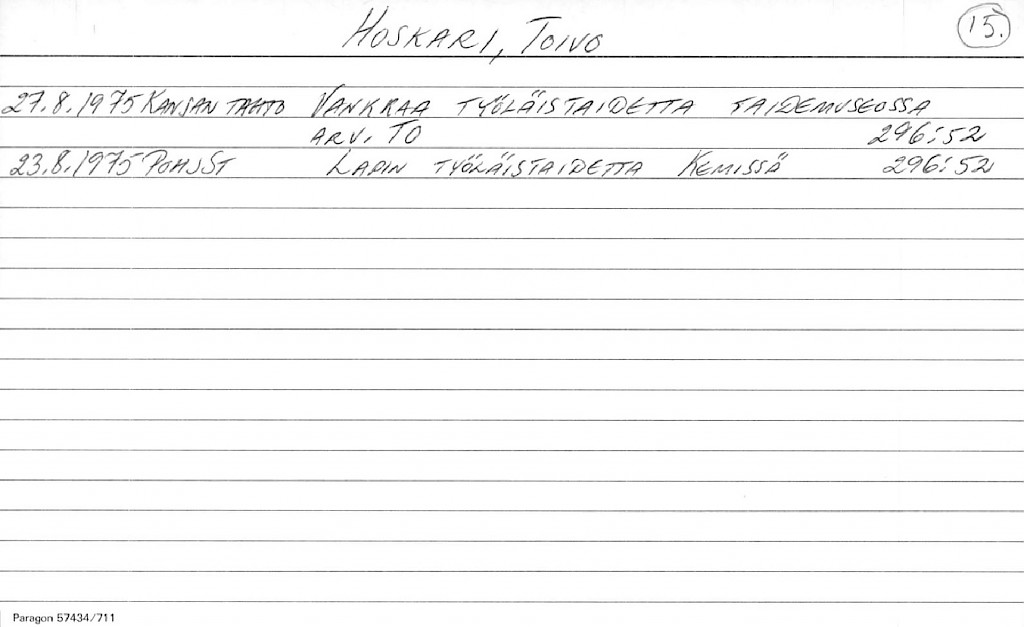 HOSKARI, TOIVO
15.
27.8.1975 KANSAN TAHTO VANKKAA TYÖLÄISTAIDETTA TAIDEMUSEOSSA
ARV. TO 296:52
23.8.1975 POHJST LAPIN TYÖLÄISTAIDETTA KEMISSÄ 296:52
Paragon 57434/711